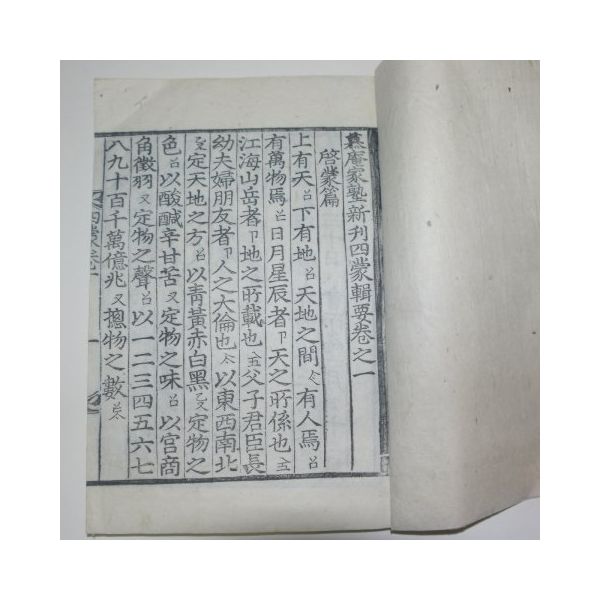 慕庵家塾新刊四蒙輯要卷之一
啓蒙篇
上有天下有地天地之間有人焉
有萬物焉日月星辰者天之所係也
江海山岳者地之所載也父子君臣長
幼夫婦朋友者人之大倫也以東西南北
定天地之方以靑黃赤白黑定物之
色以酸醎辛甘苦定物之味以宮商
角徵羽定物之聲以一二三四五六七
八九十百千萬億兆摠物之數